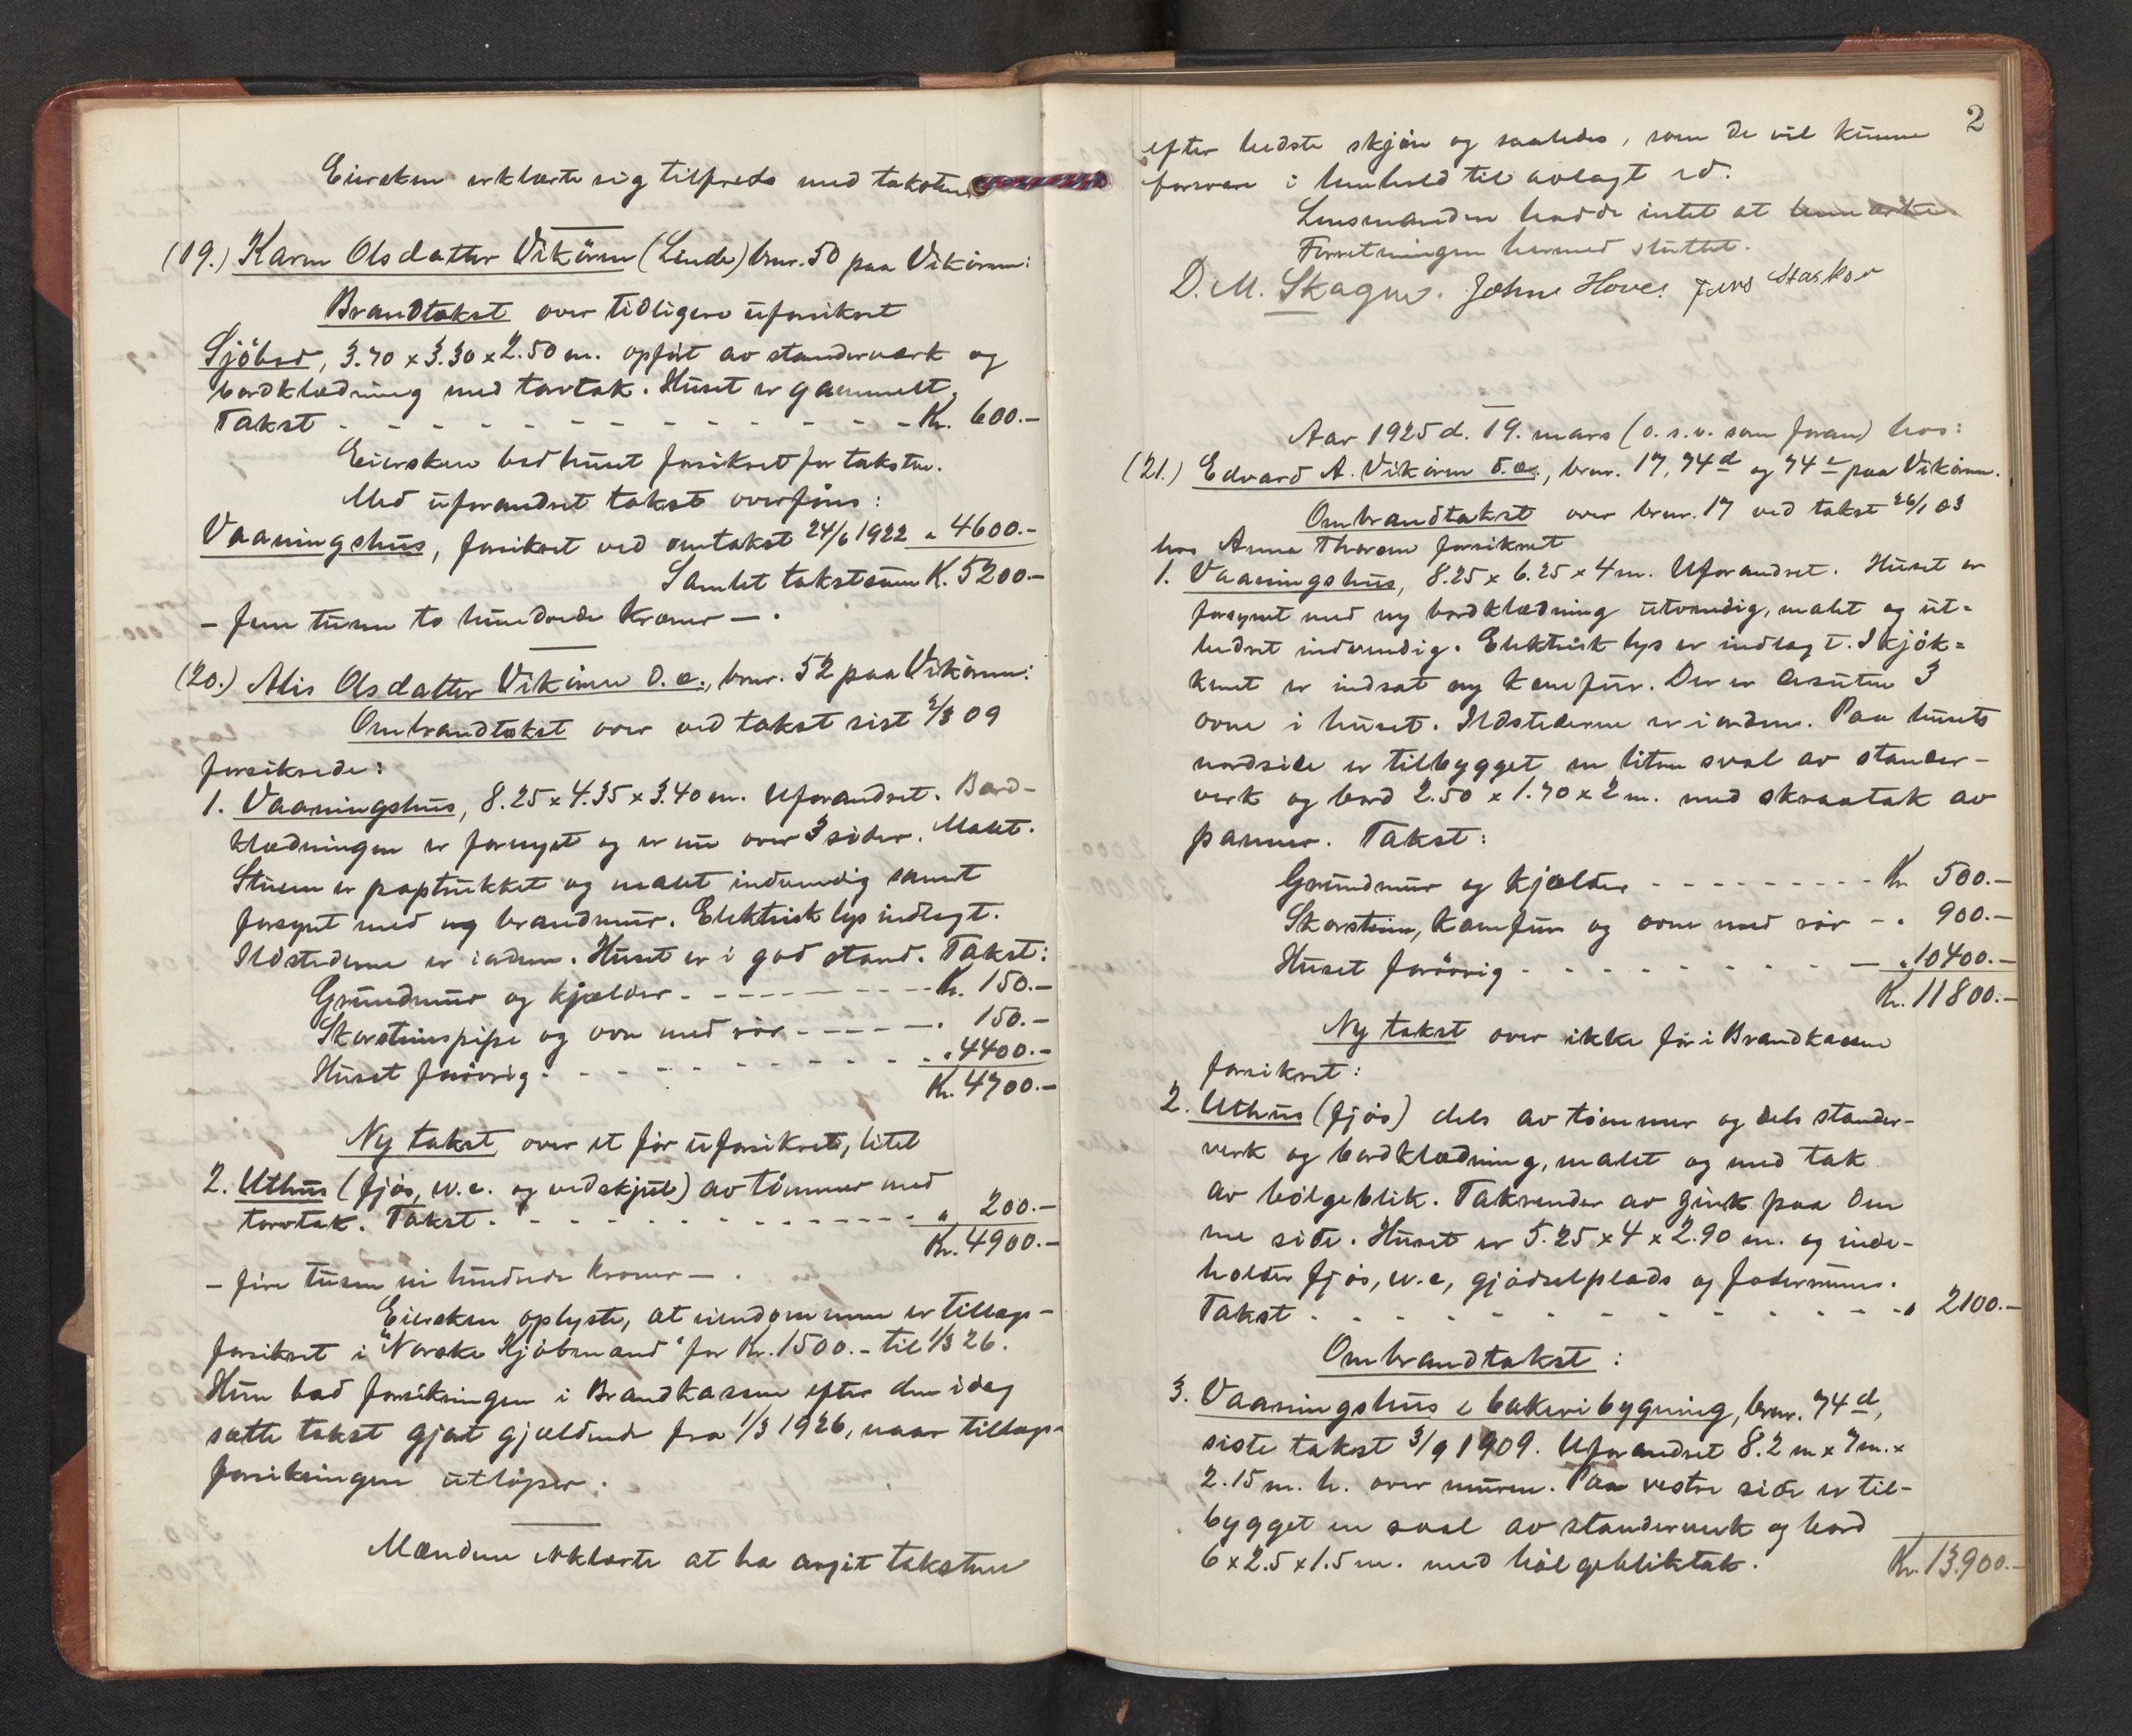 Eiersken erklærte sig tilfreds med taksten.
(19.) Karen Olsdatter Vikören (Linde) brnr. 50 paa Vikören:
Brandtakst over tidligere uforsikret
Sjöbod, 3.70 x 3.30 x 2.50 m. opfört av standerværk og
bordklædning med torvtak. Huset er gammelt.
Takst - - - - - - - - - - - - - Kr. 600.-
Eiersken bad huset forsikret for taksten.
Med uforandret takst overföres:
Vaaningshus, forsikret ved omtakst 24/6 1922 " 4600.-
Samlet takstsum K. 5200.-
- fem tusen to hundrede kroner - .
(20.) Alis Olsdatter Vikören o.a., brnr. 52 paa Vikören:
Ombrandtakst over ved takst sist 2/3 09
forsikrede:
1. Vaaningshus, 8.25 x 4.35 x 3.40 m. Uforandret. Bord-
klædningen er fornyet og er nu over 3 sider. Malt.
Stuen er paptrukket og malet indvendig samt
forsynt med ny brandmur. Elektrisk lys indlagt.
Ildstederne er i orden. Huset er i god stand. Takst:
Grundmur og kjælder - - - - - - Kr. 150.-
Skorstenspipe og ovn med rör - - - - - " 150.-
Huset forövrig - - - - - - - - - " 4400.-
Kr. 4700.-
Ny takst over et för uforsikret, litet
2. Uthus (fjös, w.c. og vedskjul) av tömmer med
torvtak. Takst - - - - - - - - - - - " 200.-
Kr. 4900.-
- fire tusen ni hundrede kroner - .
Eiersken oplyste, at eiendommen er tillægs-
forsikret i "Norske Kjöbmand" for Kr. 1500.- til 1/3 26.
Hun bad forsikringen i Brandkassen efter den idag
satte takst gjort gjældende fra 1/3 1926, naar tillægs-
forsikringen utlöper.
Mændene erklærte at ha avgit taksten
2
efter bedste skjön og saaledes, som de vil kunne
forsvare i henhold til avlagt ed.
Lensmanden hadde intet at bemerke.
Forretningen hermed sluttet.
D. M. Skagen. Johne Hove. Jens
Aar 1925 d. 19. mars (o.s.v. som foran) hos:
(21.) Edvard A. Vikören o.a., brnr. 17, 74d og 74e paa Vikören.
Ombrandtakst over brnr. 17 ved takst 26/1 03
hos Anna Thoresen forsikret
1. Vaaningshus, 8.25 x 6.25 x 4 m. Uforandret. Huset er
forsynet med ny bordklædning utvendig, malet og ut-
bedret indvendig. Elektrisk lys er indlagt. I kjök-
kenet er indsat ny komfur. Der er desuten 3
ovne i huset. Ildstederne er i orden. Paa husets
nordside er tilbygget en liten sval av stander-
verk og bord 2.50 x 1.70 x 2 m. med skraatak av
panner. Takst:
Grundmur og kjælder - - - - - - - - - Kr 500.-
Skorsten, komfur og ovne med rör - " 900.-
Huset forövrig - - - - - - - - - " 10400.-
Kr. 11800.-
Ny takst over ikke för i Brandkassen
forsikret:
2. Uthus (fjös) dels av tömmer og dels stander-
verk og bordklædning, malet og med tak
av bölgeblik. Takrender av zink paa den
ene side. Huset er 5.25 x 4 x 2.90 m. og inde-
holder fjös, w.c, gjödselplads og foderrum.
Takst - - - - - - - - - - - - - " 2100.-
Ombrandtakst:
3. Vaaningshus & bakeribygning, brnr. 74d,
siste takst 3/9 1909. Uforandret 8.2 m x 7 m. x
2.15 m. h. over muren. Paa vestre side er til-
bygget en sval av standerverk og bord
6 x 2.5 x 1.5 m. med bölgebliktak.
Kr. 13.900.-